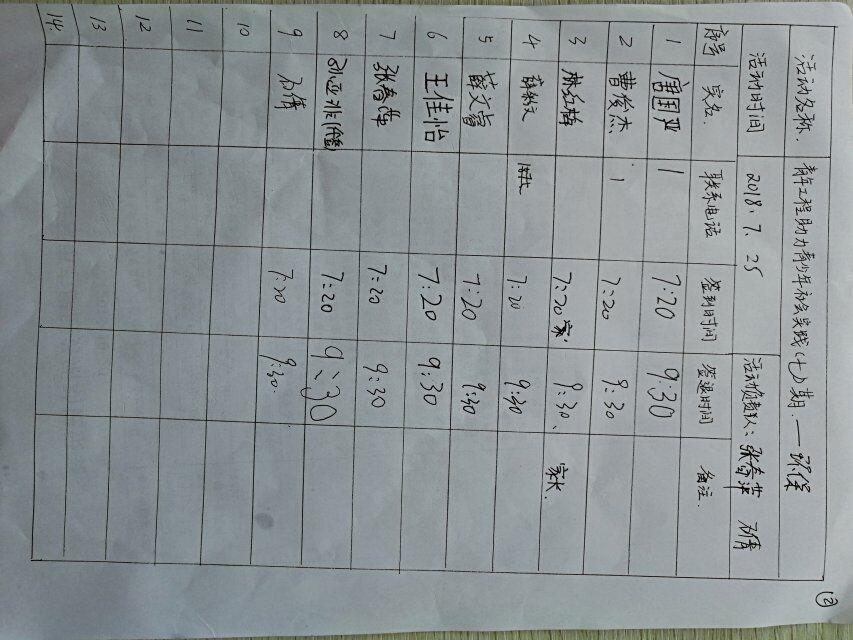 活动名称: 青年工程助力青少年社会实践(七)期.——环保
活动时间 2018.7.25 活动负责人: 张春苹 石倩
序号 实名. 联系电话 签到时间 签退时间 备注.
1 1 7:20 9:30
2 曹俊杰 1 7:20 9:30
3 7:20 家 9:30、 家长.
4 7:20 9:30
5 薛文睿 7:20 9:30
6 王佳怡 7:20 9:30
7 张春苹 7:20 9:30
8 孙亚非 7:20 9:30
9 石倩 7:20 9:30.
10
11
12
13
14